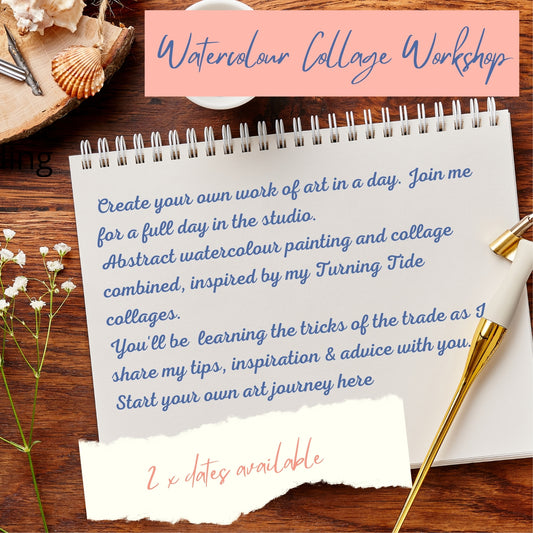 Watercolour Collage Workshop
ing
Create your own work of art in a day. Join me
for a full day in the studio.
Abstract watercolour painting and collage
combined, inspired by my Turning Tide
collages.
You'll be learning the tricks of the trade as I
share my tips, inspiration & advice with you.
Start your own art journey here
2 x dates available